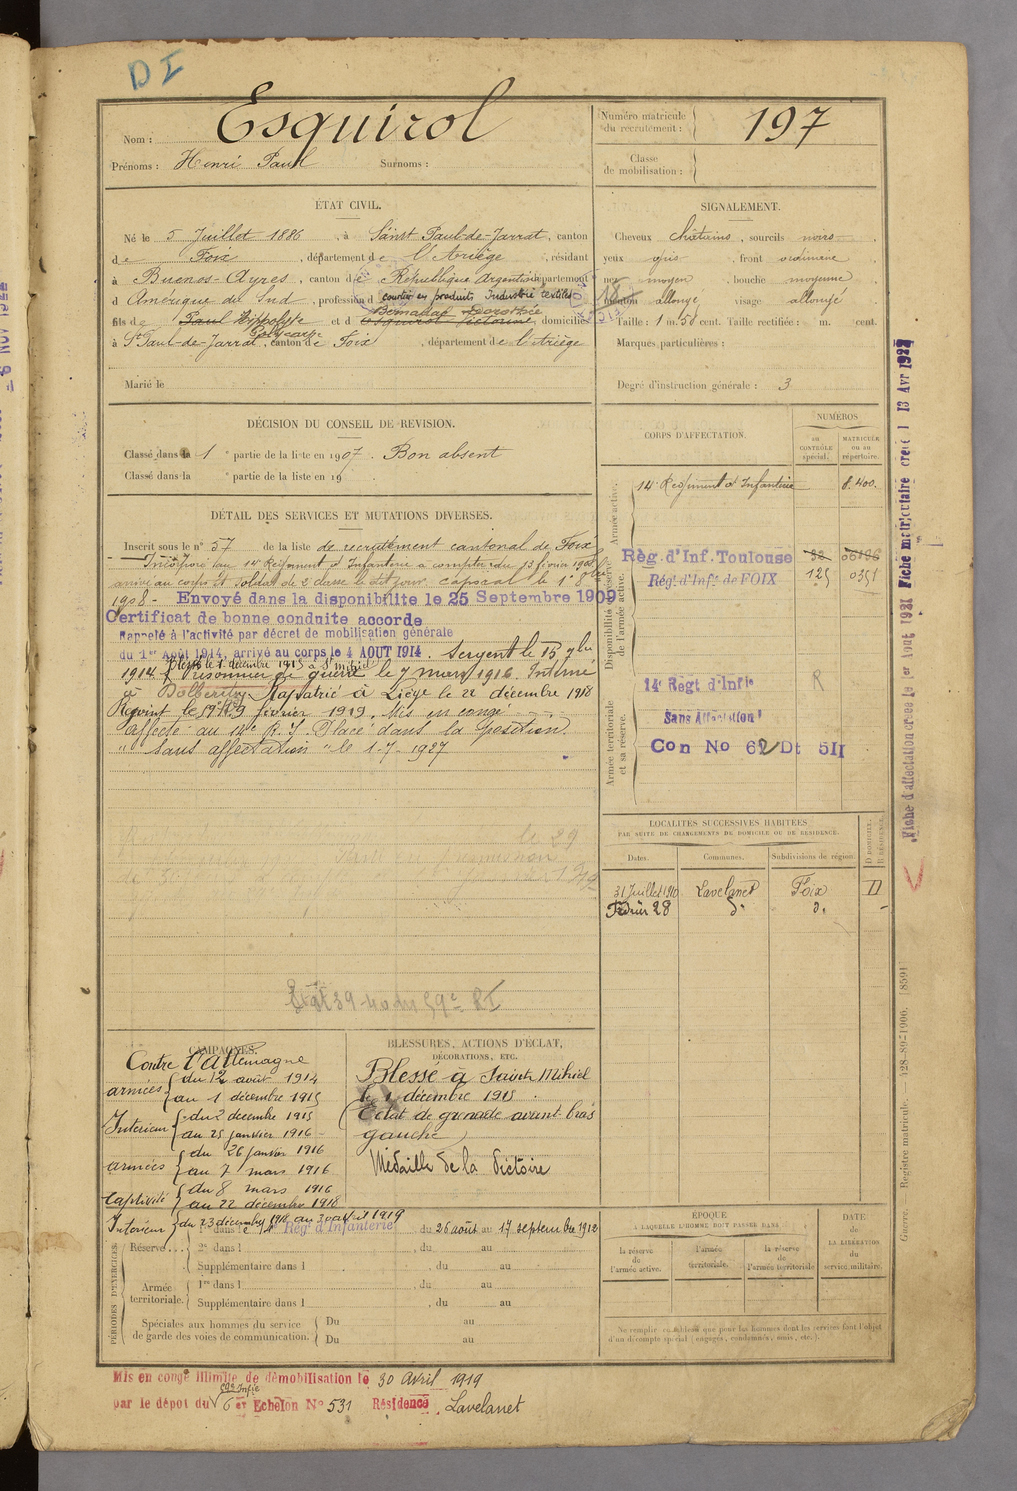 DI
Nom : Esquirol
Prénoms : Henri Paul Surnoms :
Numéro matricule
du recrutement : 197
Classe
de mobilisation :
ÉTAT CIVIL.
Né le 5 Juillet 1886, à Saint Paul-de-Jarrat, canton
de Foix, département de l'Ariège, résidant
à Buenos-Ayres, canton de République Argentine département
d Amérique du Sud, profession d courtier en produits Industrie textiles
Bernadac Dorothée
fils de Paul Hippolyte et d Esquirol Victorine, domicilié
Polycarpe
à St Paul-de-Jarrat, canton de Foix, département de l'Ariège
Marié le
SIGNALEMENT.
Cheveux châtains, sourcils noirs,
yeux gris, front ordinaire,
nez moyen, bouche moyenne,
menton allongé, visage allongé
Taille : 1 m. 50 cent. Taille rectifiée : m. cent.
Marques particulières :
Degré d'instruction générale : 3
DÉCISION DU CONSEIL DE REVISION.
Classé dans la 1e partie de la liste en 1907. Bon absent
Classé dans la e partie de la liste en 19
DÉTAIL DES SERVICES ET MUTATIONS DIVERSES.
Inscrit sous le n° 57 de la liste de recrutement cantonal de Foix
Incorporé au 14e Régiment d'Infanterie à compter du 13 février 1908
arrivé au corps et soldat de 2e classe le dit jour. Caporal le 1er 8bre
1908 - Envoyé dans la disponibilité le 25 Septembre 1909
Certificat de bonne conduite accordé
Rappelé à l'activité par décret de mobilisation générale
du 1er Août 1914, arrivé au corps le 4 AOUT 1914. Sergent le 15 9bre
Blessé le 1 décembre 1915 à St Mihiel
1914. Prisonnier de guerre le 7 mars 1916. Interné
à Dölberitz. Rapatrié à Liège le 22 décembre 1918
Rejoint le 59e R.I. 9 février 1919. Mis en congé
affecté au 14e R.I. Placé dans la position
" Sans affectation " le 1-7-1927
CORPS D'AFFECTATION.
NUMÉROS
au
CONTRÔLE
spécial.
MATRICULE
ou au
répertoire.
Armée active.
14e Régiment d'Infanterie 8.400.
Disponibilité et réserve
de l'armée active.
Règ. d'Inf. Toulouse 32
Régt d'Infie de FOIX 125 0351
Armée territoriale
et sa réserve.
14e Régt d'Infie R
Sans Affectation
Con No 62 Dt 5II
LOCALITÉS SUCCESSIVES HABITÉES
PAR SUITE DE CHANGEMENTS DE DOMICILE OU DE RÉSIDENCE.
Dates. Communes. Subdivisions de région. D DOMICILE. R RÉSIDENCE.
31 Juillet 1910 Lavelanet Foix D
Février 28 d° d°
CAMPAGNES.
Contre l'Allemagne
armées du 12 août 1914
au 1 décembre 1915
Intérieur du 2 décembre 1915
au 25 janvier 1916
armées du 26 janvier 1916
au 7 mars 1916
Captivité du 8 mars 1916
au 22 décembre 1918
Intérieur du 23 décembre 1918 au 30 avril 1919
BLESSURES, ACTIONS D'ÉCLAT,
DÉCORATIONS, ETC.
Blessé à Saint Mihiel
le 1 décembre 1915.
(Eclat de grenade avant-bras
gauche)
Médaille de la Victoire
PÉRIODES D'EXERCICES.
Réserve 1re dans le 14e Règ. d'Infanterie du 26 août au 17 septembre 1912
2e dans l , du au
Supplémentaire dans l , du au
Armée
territoriale.
1re dans l , du au
Supplémentaire dans l , du au
Spéciales aux hommes du service
de garde des voies de communication.
Du au
Du au
ÉPOQUE
À LAQUELLE L'HOMME DOIT PASSER DANS
la réserve
de
l'armée active.
l'armée
territoriale.
la réserve
de
l'armée territoriale
DATE
de
LA LIBÉRATION
du
service militaire.
Ne remplir ce tableau que pour les hommes dont les services font l'objet
d'un décompte spécial (engagés, condamnés, omis, etc.).
Mis en congé illimité de démobilisation le 30 Avril 1919
59e Infie
par le dépôt du 6 er Echelon N° 531 Résidence Lavelanet
Fiche d'affectation créée le 1er Aout 1931 Fiche matriculaire créée l 13 Avr 1932
Guerre. Registre matricule. 128-89-1906. [8591]